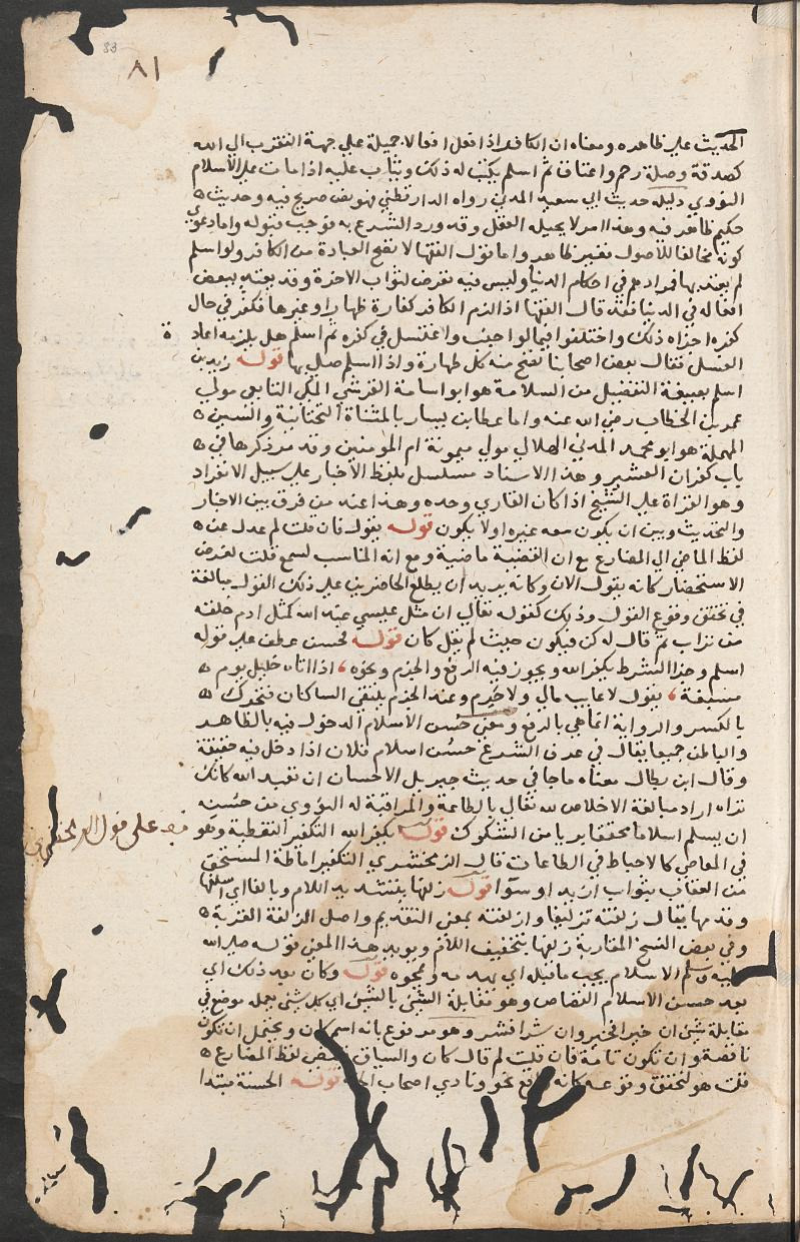 ٨١
الحديث على ظاهره ومعناه ان الكافر اذا فعل افعالا جميلة على جهة التقرب الى الله
كصدقة وصلة رحم واعتاق ثم اسلم يكتب له ذلك ويثاب عليه اذا مات على الاسلام
النووي دليله حديث ابي سعيد المدني رواه الدارقطني فهو نص صريح فيه وحديث
حكيم ظاهر فيه وهذا امر لا يحيله العقل وقد ورد الشرع به فوجب قبوله واما دعوى
كونه مخالفا للاصول فغير ظاهر واما قول الفقها لا تصح العبادة من الكافر ولو اسلم
لم يعتد بها فمرادهم في احكام الدنيا وليس فيه تعرض لثواب الاخرة وقد يعتد ببعض
افعاله في الدنيا فقد قال الفقها اذا لزم الكافر كفارة ظهار او غيرها فكفر في حال
كفره اجزاه ذلك واختلفوا فيما لو اجنب واغتسل في كفره ثم اسلم هل يلزمه اعادة
الغسل فقال بعض اصحابنا تصح منه كل طهارة واذا اسلم صلى بها قوله زيد بن
اسلم بصيغة التفضيل من السلامة هو ابو اسامة القرشي المكي التابعي مولى
عمر بن الخطاب رضي الله عنه واما عطا بن يسار بالمثناة التحتانية والسين
المهملة هو ابو محمد المدني الهلالي مولى ميمونة ام المومنين وقد مر ذكرها في
باب كفران العشير وهذا الاسناد مسلسل بلفظ الاخبار على سبيل الانفراد
وهو القراة على الشيخ اذا كان القاري وحده وهذا عند من فرق بين الاخبار
والتحديث وبين ان يكون معه غيره او لا يكون قوله يقول فان قلت لم عدل عن
لفظ الماضي الى المضارع مع ان القضية ماضية ومع انه المناسب لسمع قلت لغرض
الاستحضار كانه يقول الان وكانه يريد ان يطلع الحاضرين على ذلك القول مبالغة
في تحقق وقوع القول وذلك كقوله تعالى ان مثل عيسى عند الله كمثل ادم خلقه
من تراب ثم قال له كن فيكون حيث لم يقل كان قوله فحسن عطف على قوله
اسلم وجزا الشرط يكفر الله ويجوز فيه الرفع والجزم ونحوه ، اذا اتاه خليل يوم
مسغبة ، يقول لا غايب مالي ولا حرم وعند الجزم يلتقي الساكنان فتحرك
بالكسر والرواية انما هي بالرفع ومعنى حسن الاسلام الدخول فيه بالظاهر
والباطن جميعا يقال في عرف الشرع حسن اسلام فلان اذا دخل فيه حقيقة
وقال ابن بطال معناه ما جا في حديث جبريل الاحسان ان تعبد الله كانك
تراه اراد مبالغة الاخلاص لله تعالى بالطاعة والمراقبة له النووي من حسنه
ان يسلم اسلاما محققا بريا من الشكوك قوله يكفر الله التكفير التغطية وهو
في المعاصي كالاحباط في الطاعات قال الزمخشري التكفير اماطة المستحق
من العقاب بثواب ازيد او سوا قوله زلفها بتشديد اللام وبالفا اي اسلفها
وقدمها يقال زلفته تزليفا وازلفته بمعنى التقديم واصل الزلفة القربة
وفي بعض النسخ المغاربة زلفها بتخفيف اللام ويويد هذا المعنى قوله صلى الله
عليه وسلم الاسلام يجب ما قبله اي يهدمه ويمحوه قوله وكان بعد ذلك اي
بعد حسن الاسلام القصاص وهو مقابلة الشي بالشي اي كل شي يعمله موضع في
مقابلة شي ان خير فخير وان شرا فشر وهو مرفوع بانه اسم كان ويحتمل ان تكون
ناقصة وان تكون تامة فان قلت لم قال كان والسياق يقتضي لفظ المضارع
قلت هو لتحقق وقوعه كانه واقع نحو ونادى اصحاب الجنة قوله الحسنة مبتدا